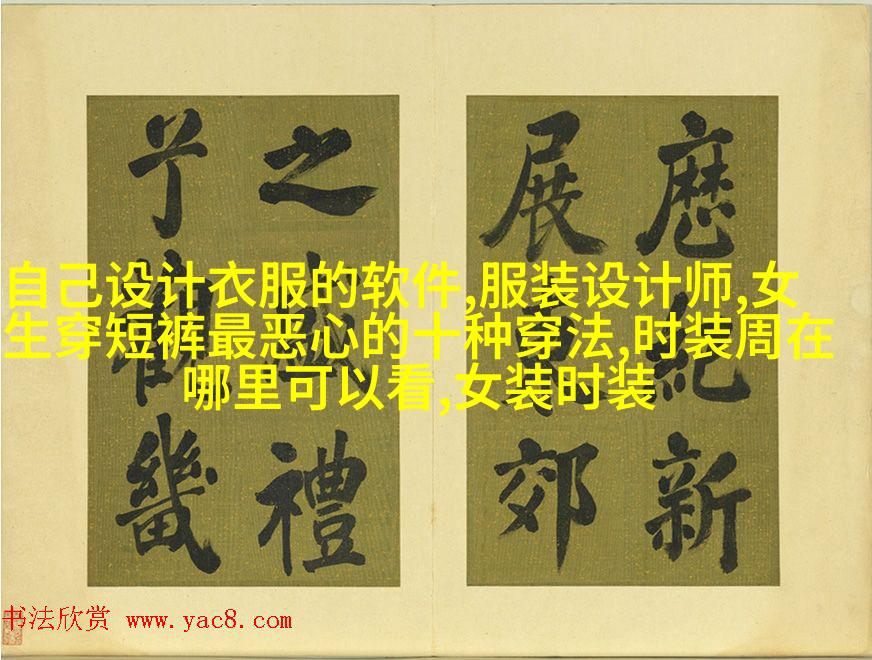 自己设计衣服的软件,服装设计师,女
生穿短裤最恶心的十种穿法,时装周在
哪里可以看,女装时装
厯紀新
展郊
之禮
觀畿
书法欣赏 www.yac8.com